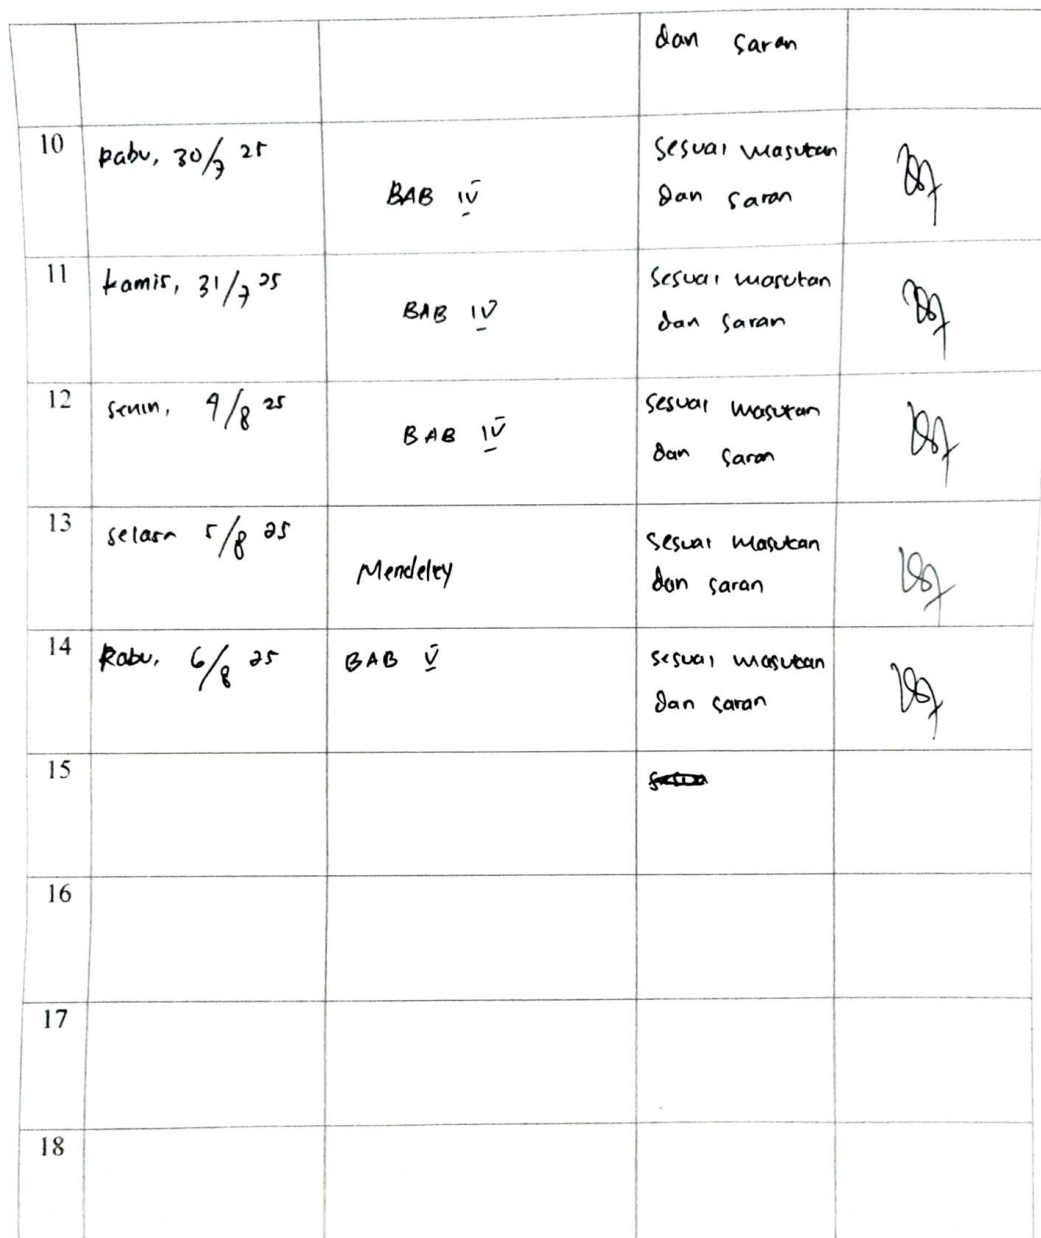 dan saran
10
Rabu, 30/7 25
BAB IV
Sesuai masukan
dan saran
11
Kamis, 31/7 25
BAB IV
Sesuai masukan
dan saran
12
Senin, 4/8 25
BAB IV
Sesuai masukan
dan saran
13
Selasa 5/8 25
Mendeley
Sesuai masukan
dan saran
14
Rabu, 6/8 25
BAB V
Sesuai masukan
dan saran
15
16
17
18